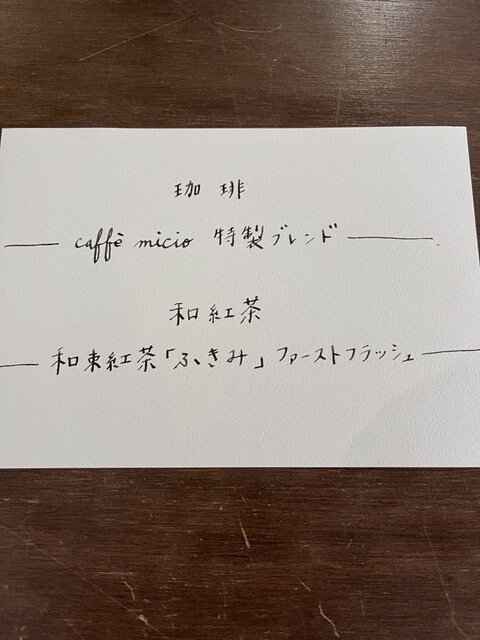 珈琲
caffè micio 特製ブレンド
和紅茶
和束紅茶「ふきみ」ファーストフラッシュ